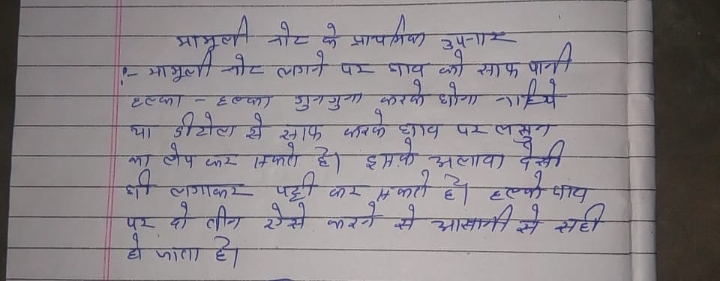 मामूली चोट के प्राथमिक उपचार
:- मामूली चोट लगने पर घाव को साफ पानी
हल्का - हल्का गुनगुना करके धोना चाहिये
या डीटोल से साफ करके घाव पर लसुन
का लेप कर सकते है। इसके अलावा देसी
घी लगाकर पट्टी कर सकते है। हल्के घाव
पर दो तीन ऐसे करने से आसानी से सही
हो जाता है।